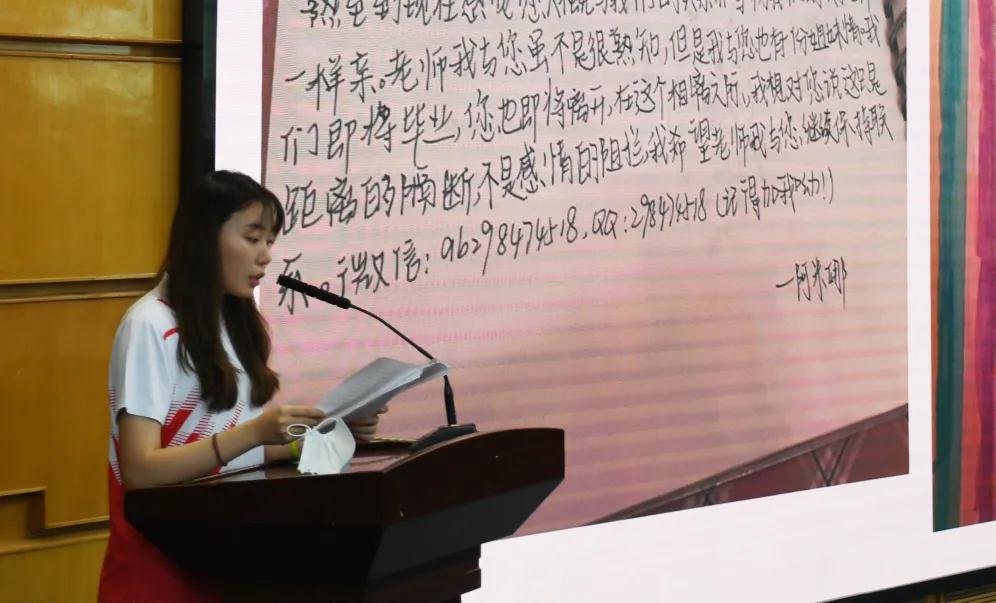 熟
一样亲。老师我与您虽不是很熟知,但是我与您也有一份姐妹情。我
们即将毕业,您也即将离开,在这个相离之际,我想对您说这只是
距离的隔断,不是感情的阻拦,我希望老师我与您继续保持联
系。微信:q6298474518,QQ:298474518(记得加我呦!)
—阿米娜